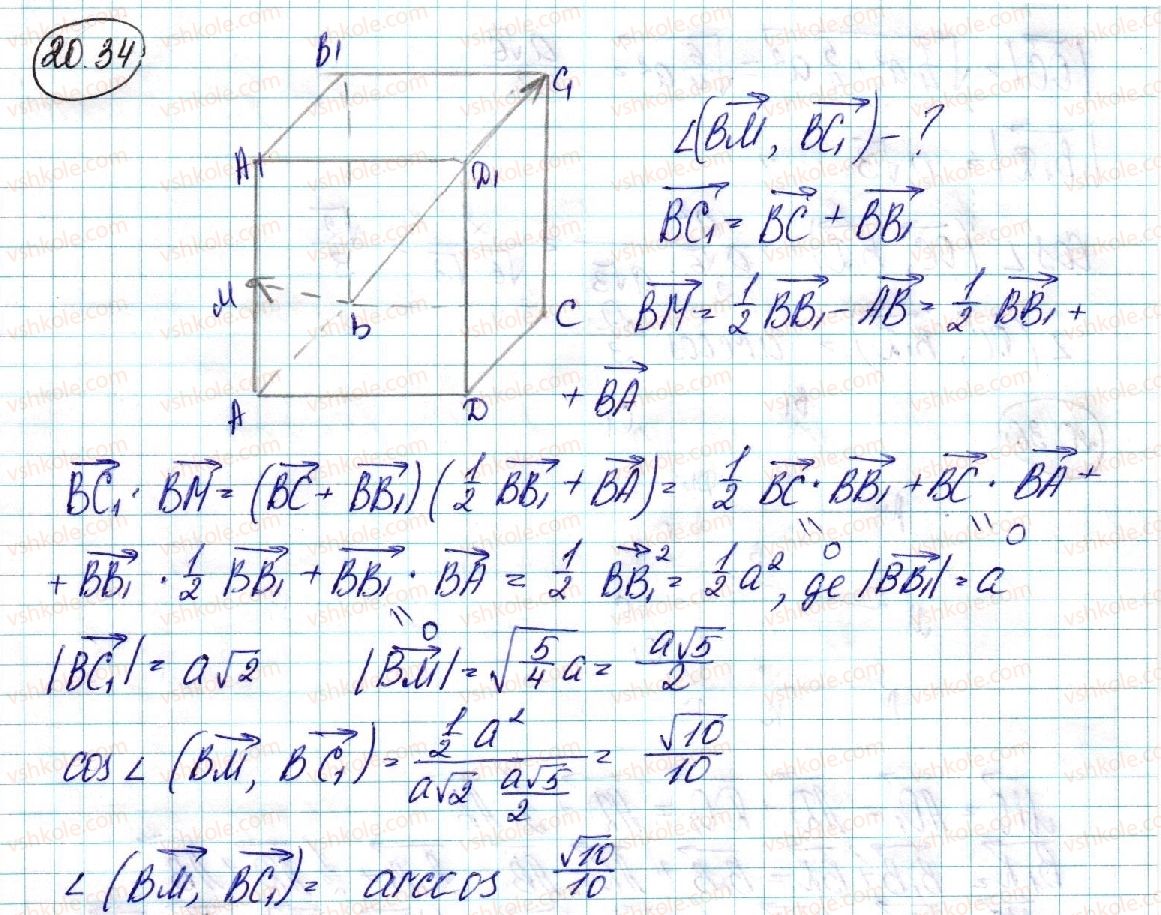 20.34
B₁
C₁
A₁
D₁
M
B
C
A
D
∠(BM⃗, BC₁⃗) - ?
BC₁⃗ = BC⃗ + BB₁⃗
BM⃗ = 1/2 BB₁⃗ - AB⃗ = 1/2 BB₁⃗ +
+ BA⃗
BC₁⃗ · BM⃗ = (BC⃗ + BB₁⃗)(1/2 BB₁⃗ + BA⃗) = 1/2 BC⃗ · BB₁⃗ + BC⃗ · BA⃗ +
"0 "0
+ BB₁⃗ · 1/2 BB₁⃗ + BB₁⃗ · BA⃗ = 1/2 BB₁⃗² = 1/2 a², де |BB₁⃗| = a
"0
|BC₁⃗| = a√2 |BM⃗| = √(5/4) a = a√5/2
cos ∠(BM⃗, BC₁⃗) = (1/2 a²)/(a√2 a√5/2) = √10/10
∠(BM⃗, BC₁⃗) = arccos √10/10
vshkole.com